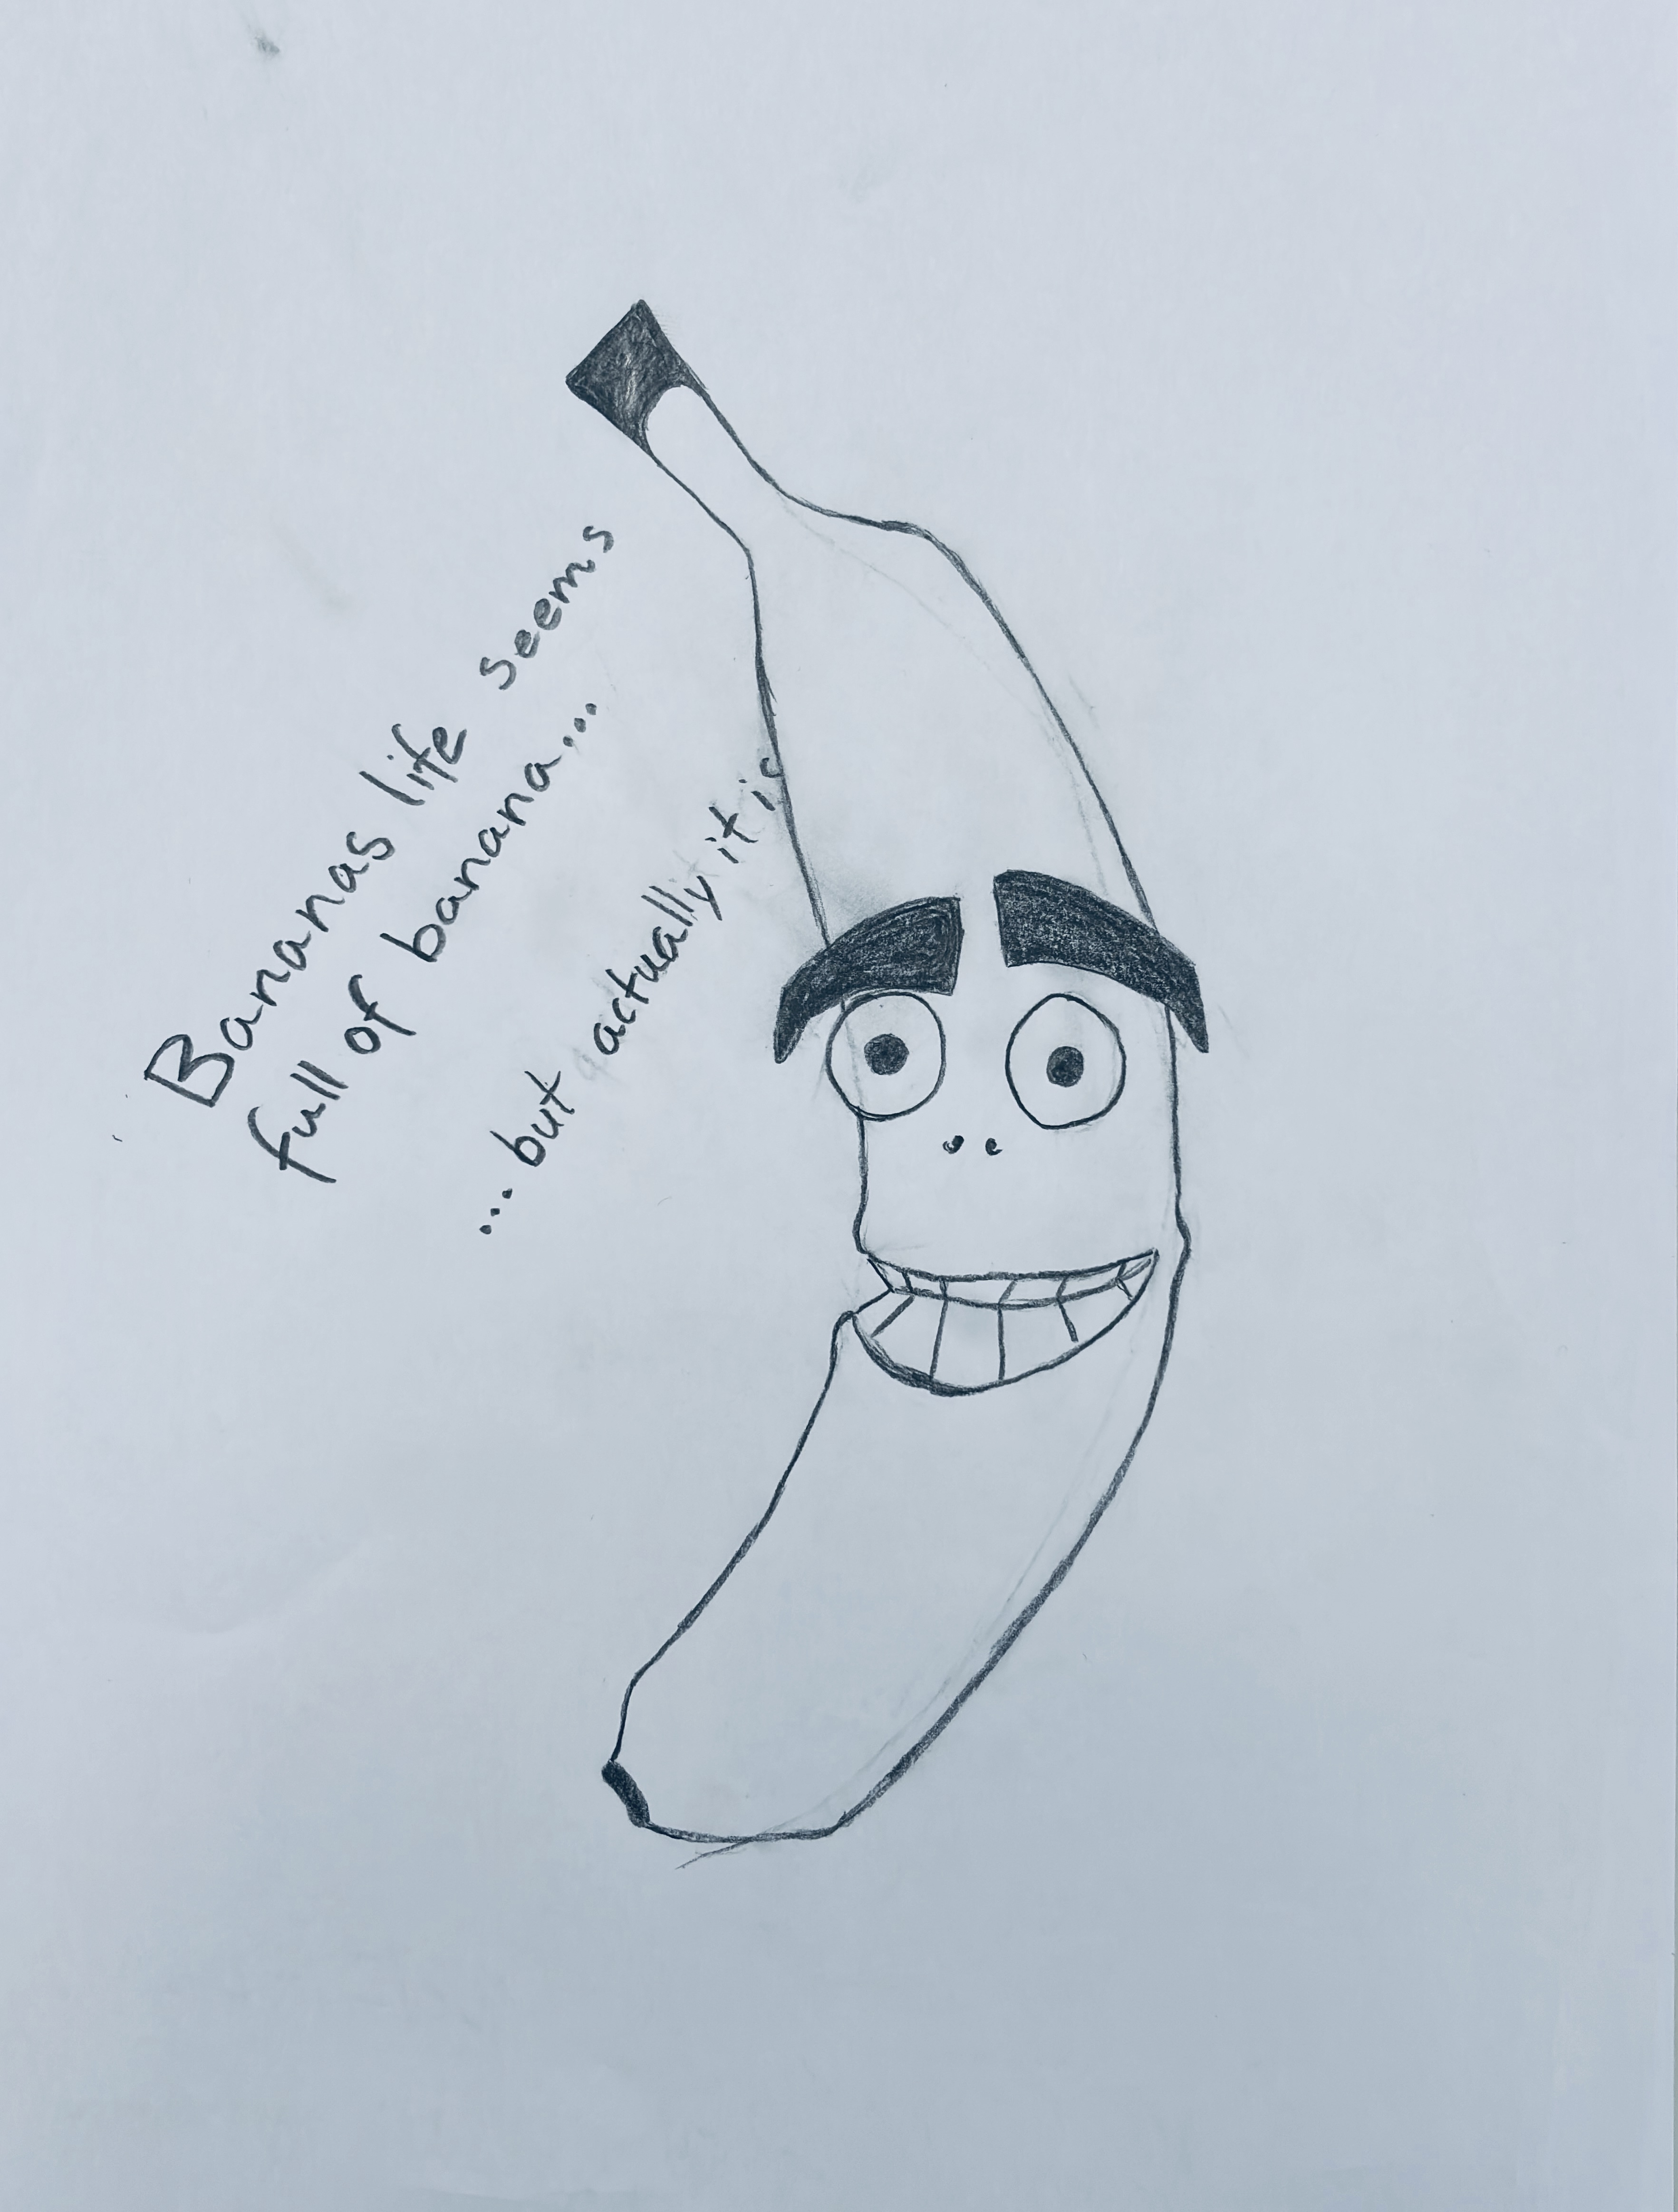 Bananas life seems
full of banana...
... but actually it is